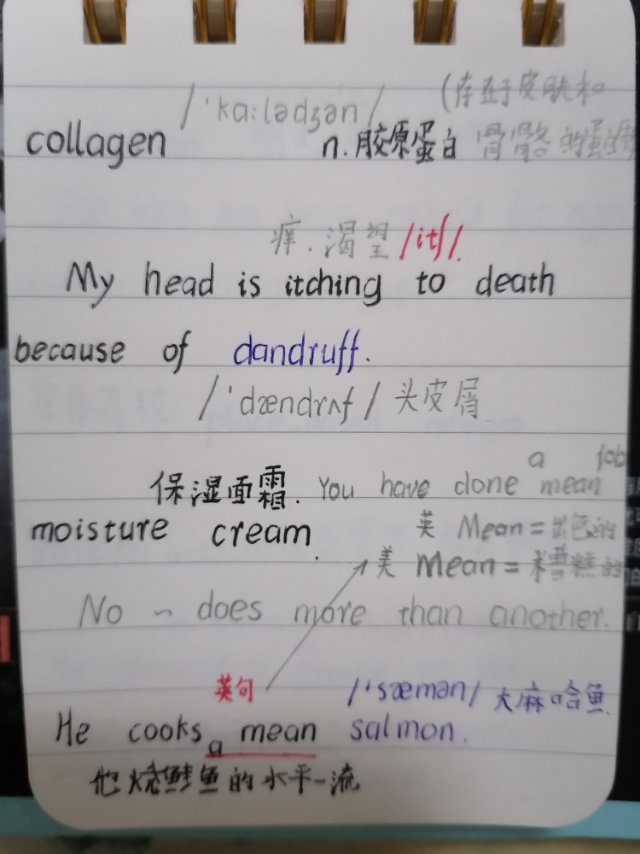 /ˈkɑ:lədʒən/ (存在于皮肤和
collagen n.胶原蛋白 骨骼的蛋白
痒.渴望 /itʃ/.
My head is itching to death
because of dandruff.
/ˈdændrʌf/ 头皮屑
a job
保湿面霜. You have done mean
moisture cream. 英 Mean = 出色的
美 Mean = 糟糕的
No ~ does more than another.
英句 /ˈsæmən/ 大麻哈鱼
He cooks a mean salmon.
他烧鲑鱼的水平一流